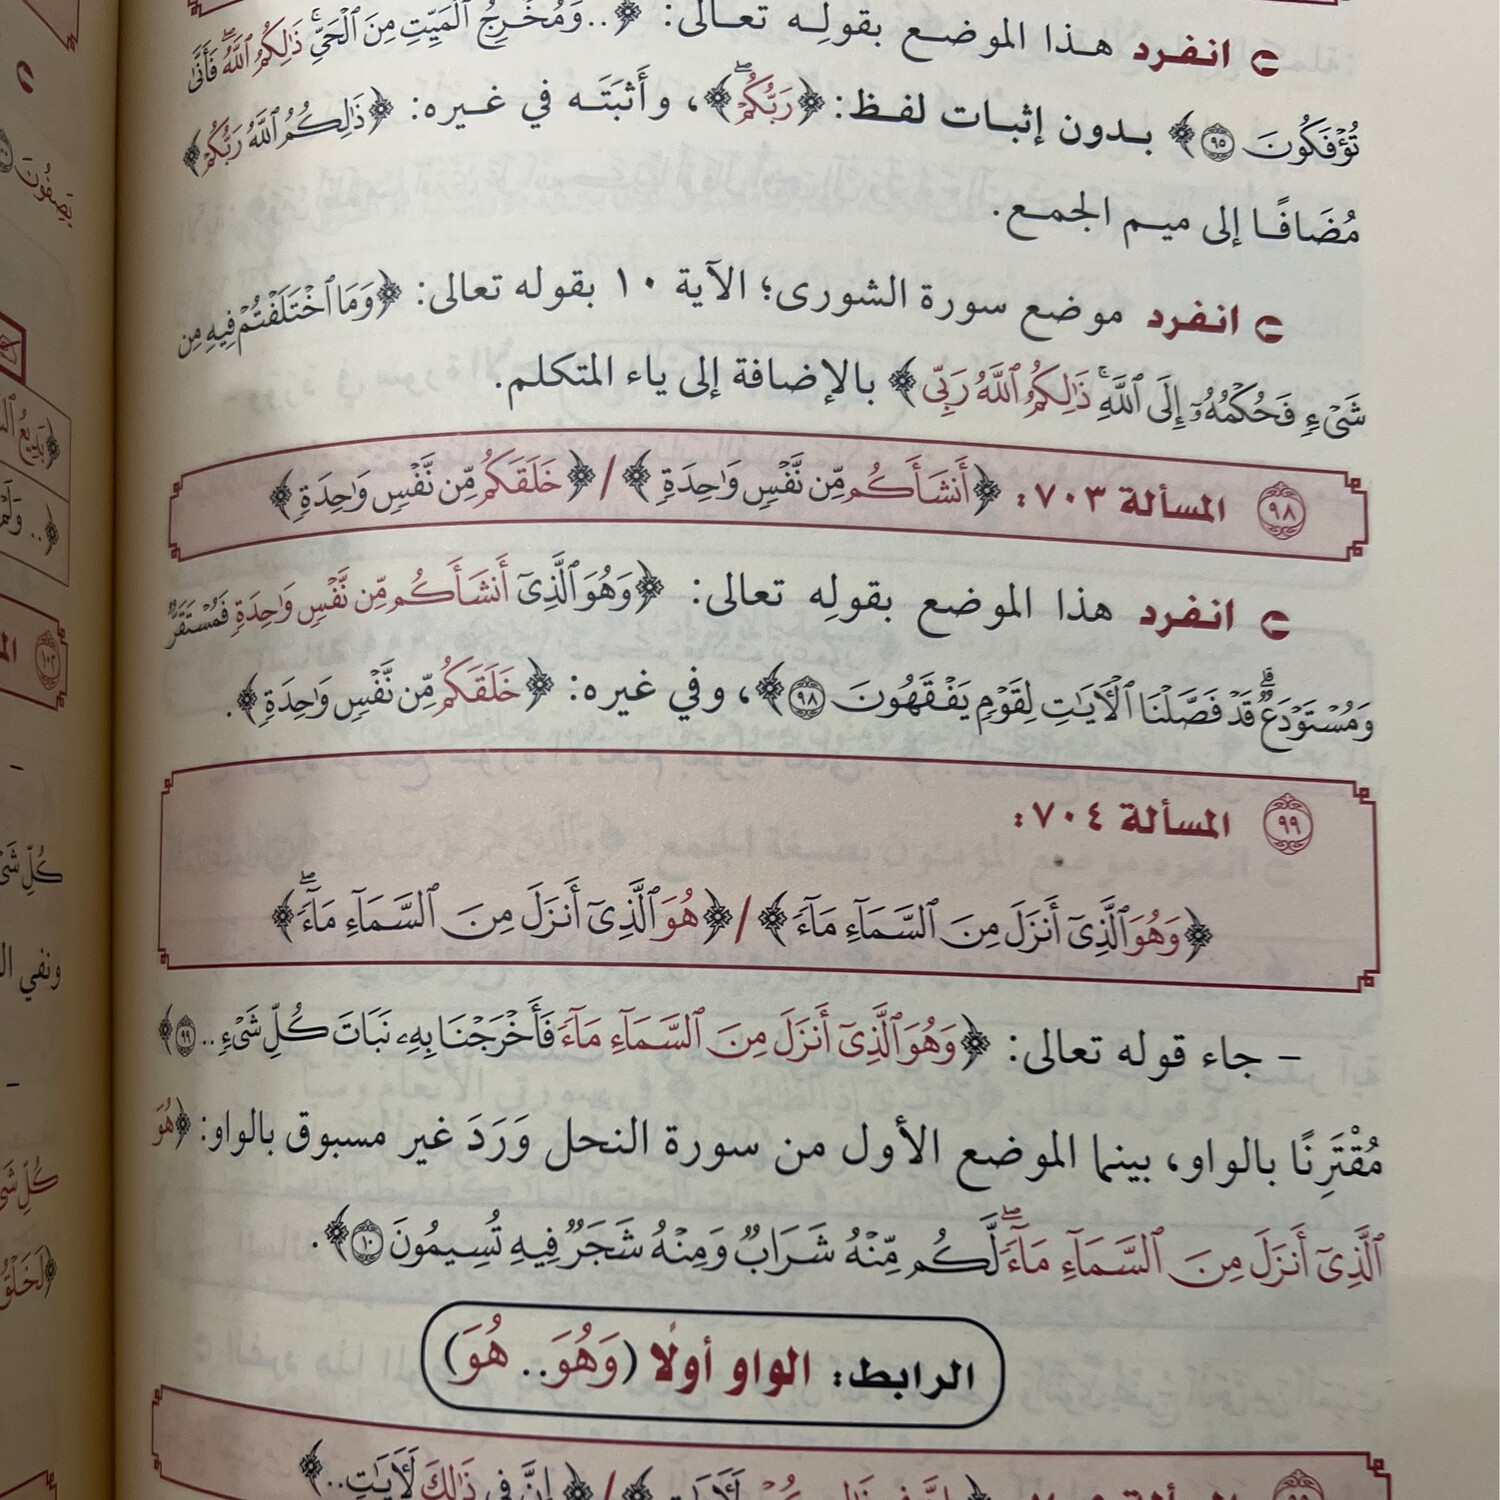 انفرد هذا الموضع بقولِه تعالى: ﴿..وَمُخْرِجُ ٱلْمَيِّتِ مِنَ ٱلْحَيِّۚ ذَٰلِكُمُ ٱللَّهُۖ فَأَنَّىٰ
تُؤْفَكُونَ ٩٥﴾ بدون إثبات لفظ: ﴿رَبُّكُمْۖ﴾، وأثبَتَه في غيره: ﴿ذَٰلِكُمُ ٱللَّهُ رَبُّكُمْ﴾
مُضَافًا إلى ميم الجمع.
انفرد موضع سورة الشورى؛ الآية ١٠ بقوله تعالى: ﴿وَمَا ٱخْتَلَفْتُمْ فِيهِ مِن
شَىْءٍ فَحُكْمُهُۥٓ إِلَى ٱللَّهِۚ ذَٰلِكُمُ ٱللَّهُ رَبِّى﴾ بالإضافة إلى ياء المتكلم.
٩٨ المسألة ٧٠٣: ﴿أَنشَأَكُم مِّن نَّفْسٍ وَٰحِدَةٍ﴾/﴿خَلَقَكُم مِّن نَّفْسٍ وَٰحِدَةٍ﴾
انفرد هذا الموضع بقولِه تعالى: ﴿وَهُوَ ٱلَّذِىٓ أَنشَأَكُم مِّن نَّفْسٍ وَٰحِدَةٍ فَمُسْتَقَرٌّ
وَمُسْتَوْدَعٌۗ قَدْ فَصَّلْنَا ٱلْـَٔايَٰتِ لِقَوْمٍ يَفْقَهُونَ ٩٨﴾، وفي غيره: ﴿خَلَقَكُم مِّن نَّفْسٍ وَٰحِدَةٍ﴾.
٩٩ المسألة ٧٠٤:
﴿وَهُوَ ٱلَّذِىٓ أَنزَلَ مِنَ ٱلسَّمَآءِ مَآءً﴾/﴿هُوَ ٱلَّذِىٓ أَنزَلَ مِنَ ٱلسَّمَآءِ مَآءًۖ﴾
– جاء قوله تعالى: ﴿وَهُوَ ٱلَّذِىٓ أَنزَلَ مِنَ ٱلسَّمَآءِ مَآءً فَأَخْرَجْنَا بِهِۦ نَبَاتَ كُلِّ شَىْءٍ.. ٩٩﴾
مُقْتَرِنًا بالواو، بينما الموضع الأول من سورة النحل وَرَدَ غير مسبوق بالواو: ﴿هُوَ
ٱلَّذِىٓ أَنزَلَ مِنَ ٱلسَّمَآءِ مَآءًۖ لَّكُم مِّنْهُ شَرَابٌ وَمِنْهُ شَجَرٌ فِيهِ تُسِيمُونَ ١٠﴾.
الرابط: الواو أولًا (وَهُوَ.. هُوَ)
﴿إِنَّ فِى ذَٰلِكَ لَـَٔايَٰتٍ..﴾
يَصِفُونَ
بَدِيعُ
١٠٢
كُلِّ
ونفي
كُلِّ